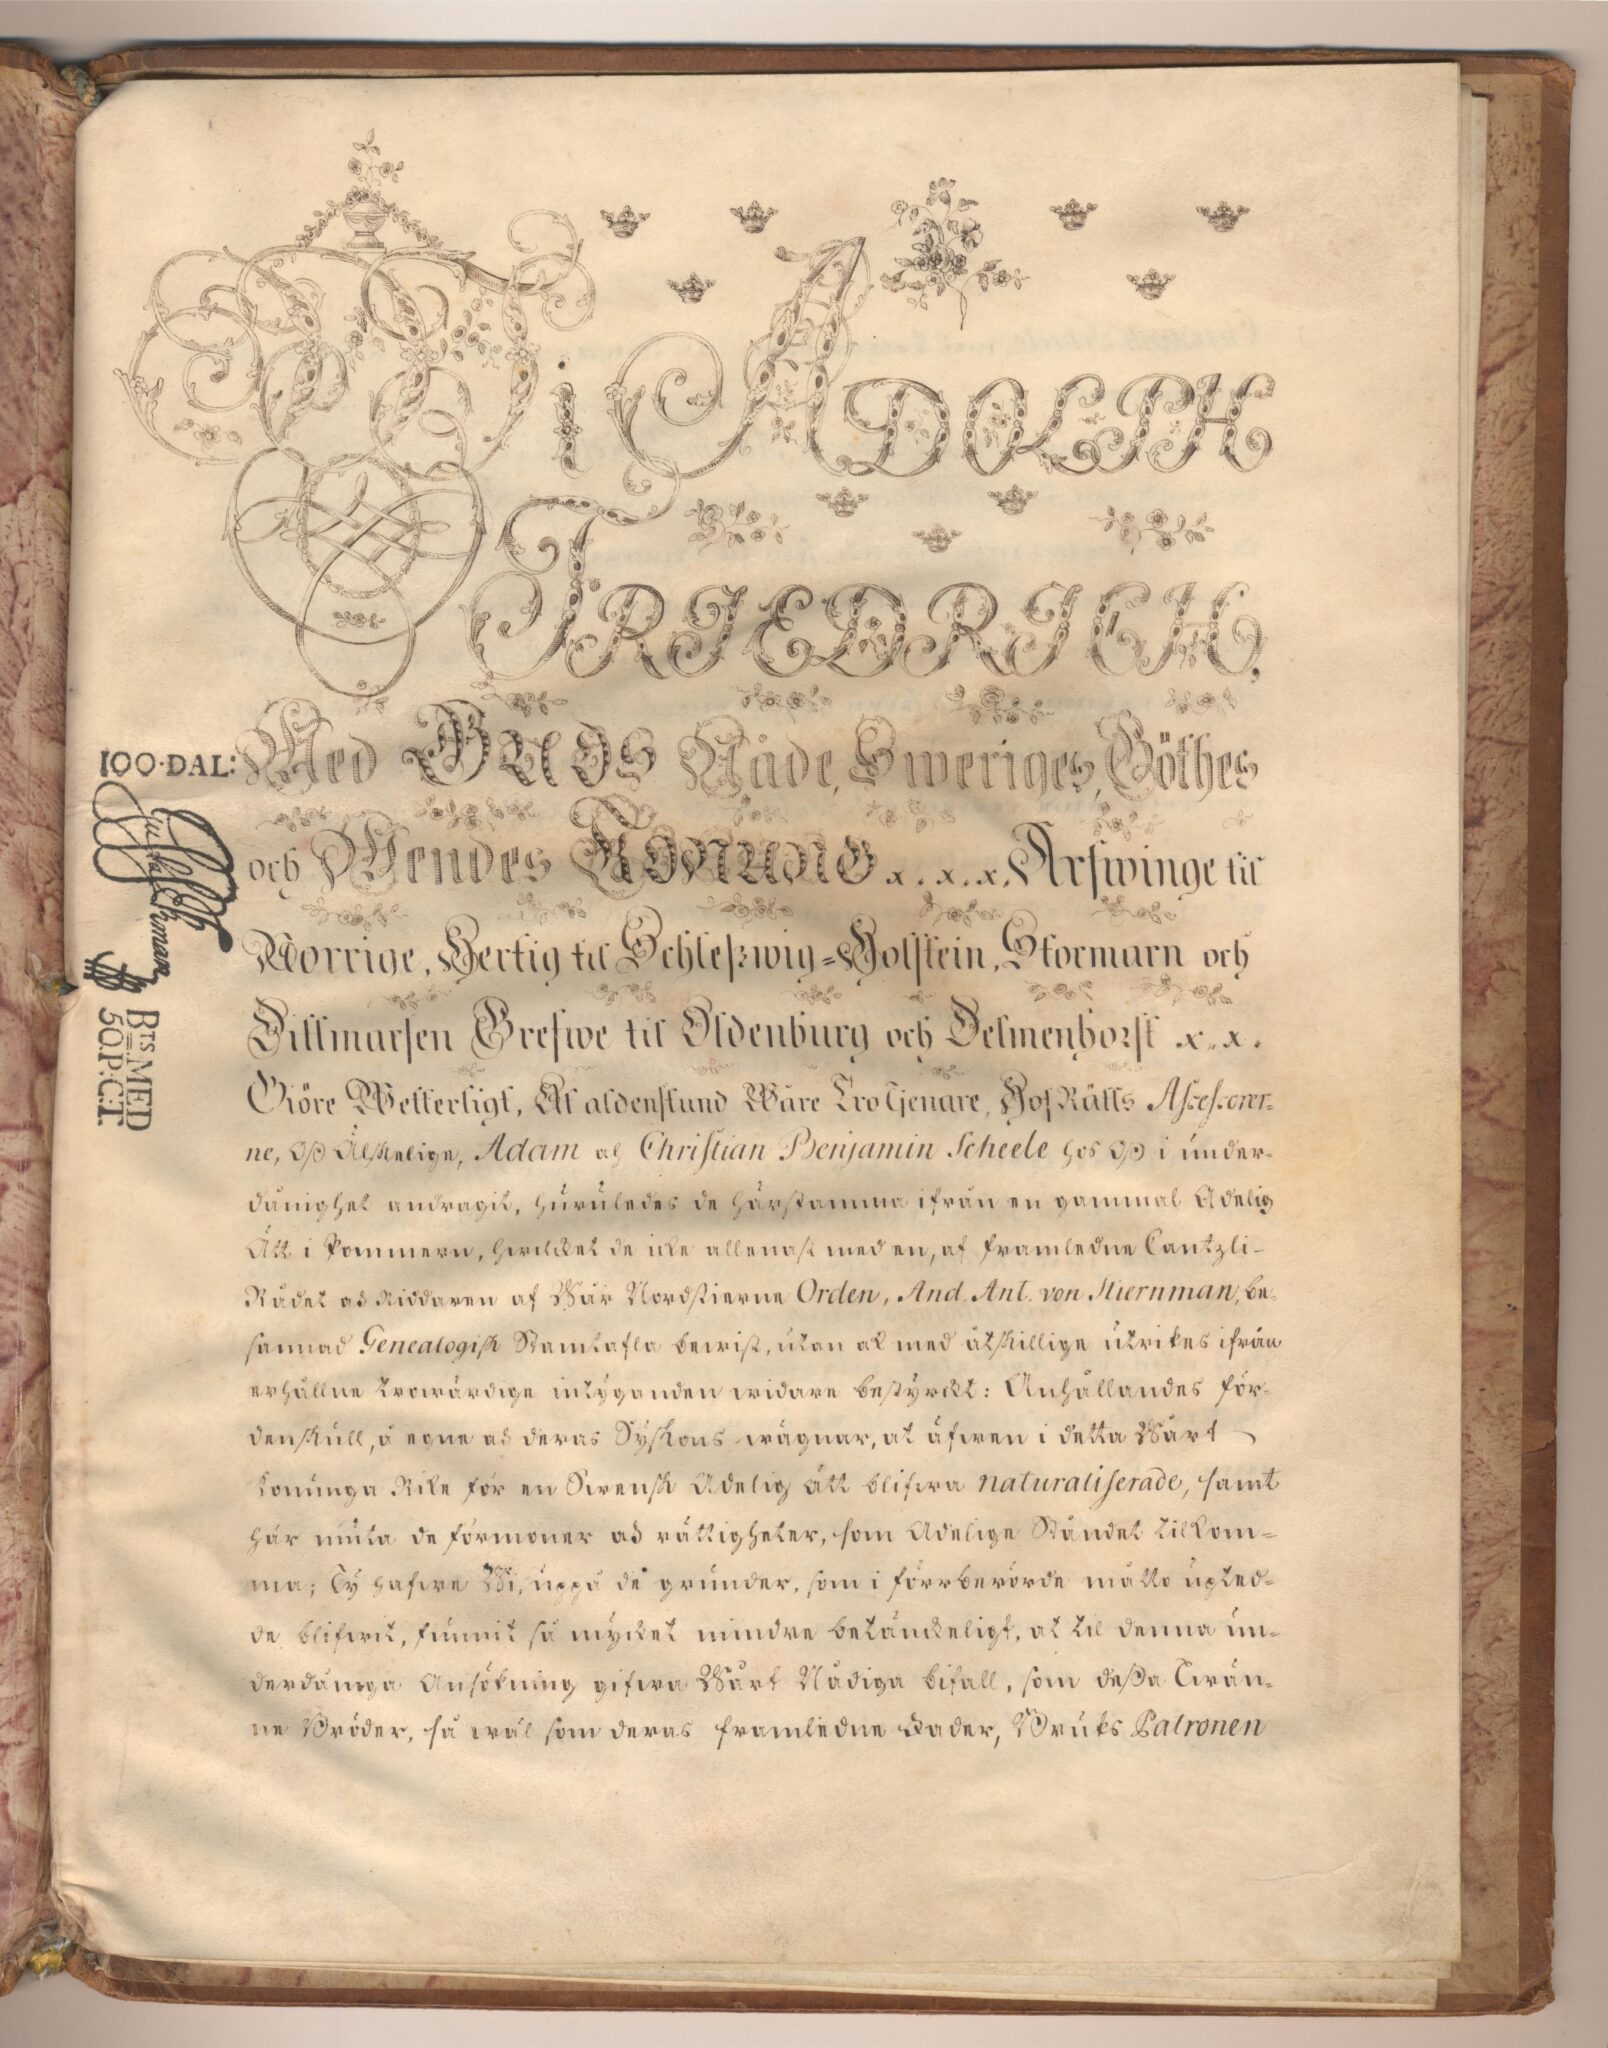 Wi ADOLPH
FRIEDRICH,
Med GUDS Nåde, Sweriges, Göthes
och Wendes KONUNG x. x. x. Arfwinge til
Norrige, Hertig til Schleßwig=Holstein, Stormarn och
Dittmarsen Grefwe til Oldenburg och Delmenhorst x. x.
Giöre Wetterligt, At aldenstund Wåre Tro Tjenare, Hof Rätts Assessorer-
ne, Oß Älskelige, Adam och Christian Benjamin Scheele hos Oß i under-
dånighet andragit, huruledes de härstamma ifrån en gammal Adelig
Ätt i Pommern, hwilcket de icke allenast med en, af framledne Cantzli-
Rådet och Riddaren af Wår Nordstierne Orden, And. Ant. von Stiernman, be-
sannad Genealogisk Stamtafla bewist, utan ock med åtskillige utrikes ifrån
erhållne trowärdige intyganden widare bestyrckt: Anhållandes för-
denskull, å egne och deras Syskons wägnar, at äfwen i detta Wårt
Konunga Rike för en Swensk Adelig ätt blifwa naturaliserade, samt
här niuta de förmoner och rättigheter, som Adelige Ståndet tilkom-
ma; Ty hafwe Wi, uppå de grunder, som i förrberörde måtto upled-
de blifwit, funnit så mycket mindre betänckeligt, at til denna un-
derdåniga Ansökning gifwa Wårt Nådiga bifall, som deßa Twän-
ne Bröder, så wäl som deras framledne Fader, Bruks Patronen
100·DAL:
Bts MED
50.P:C:T.